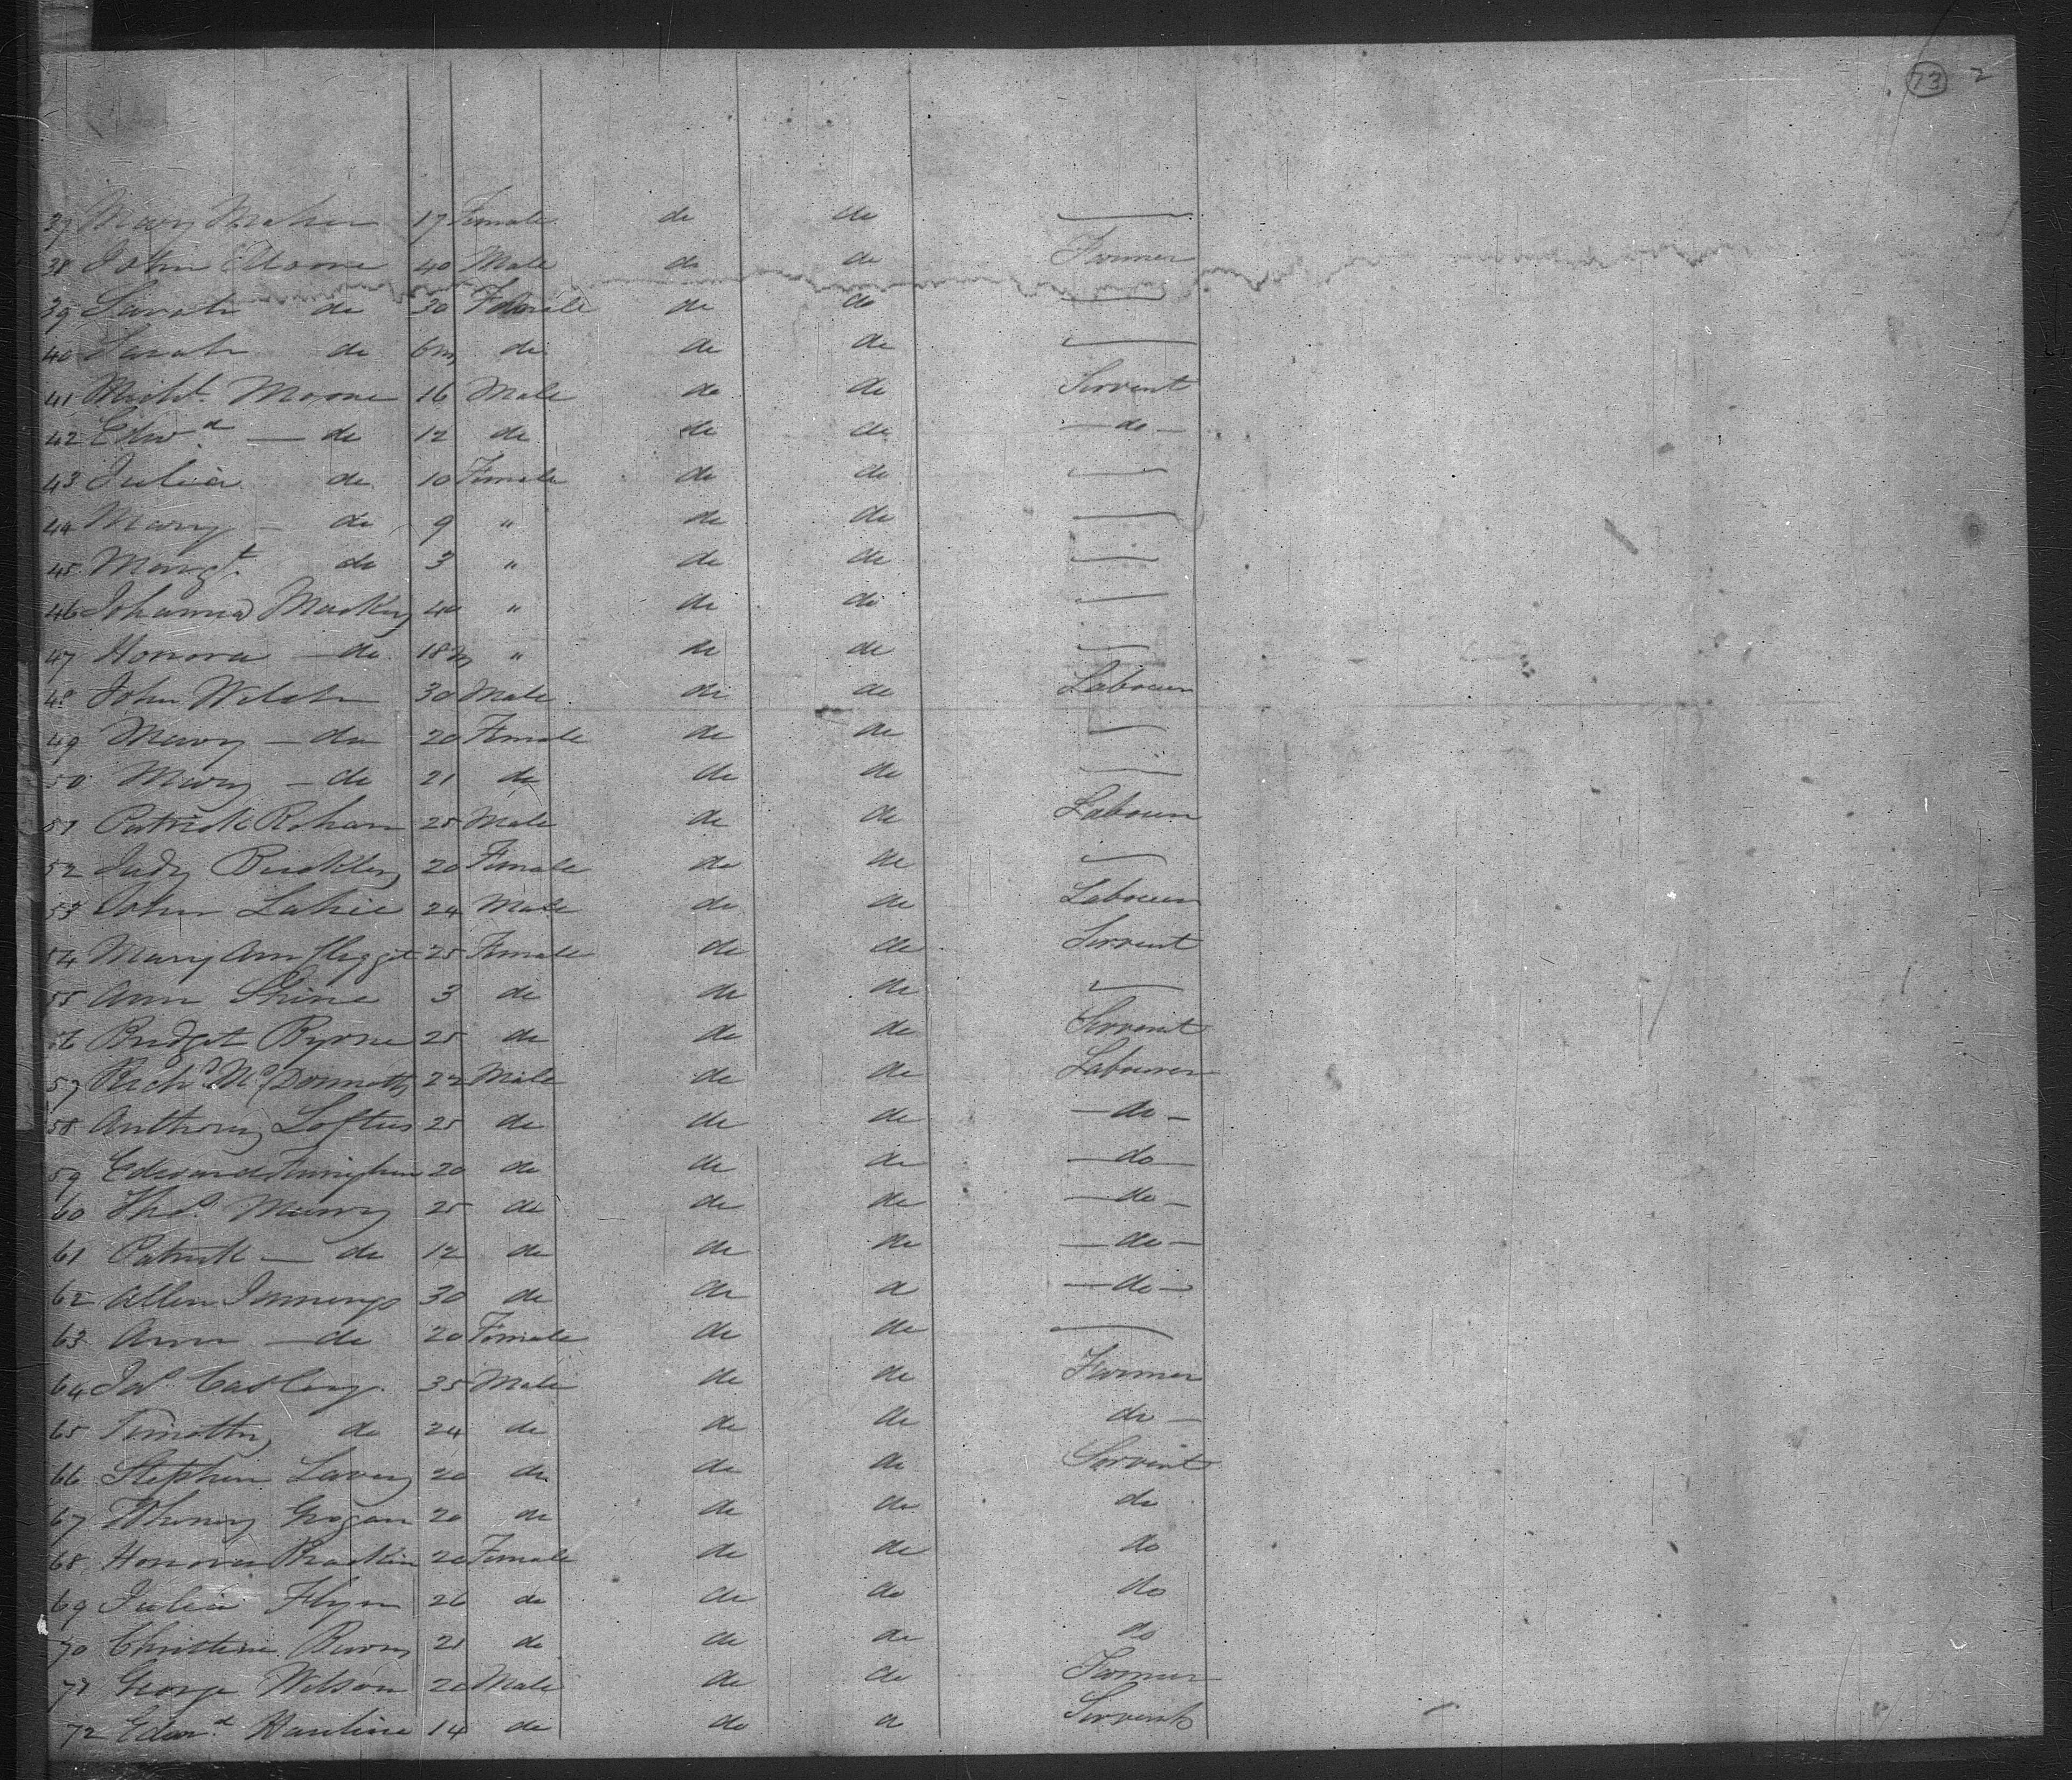 73 2
37 Mary Maher 17 Female do do —
38 John Moore 40 Male do do Farmer
39 Sarah do 30 Female do do —
40 Sarah do 6m do do do —
41 Michl. Moore 16 Male do do Servent
42 Edwd — do 12 do do do — do —
43 Julia do 10 Female do do —
44 Mary — do 9 " do do —
45 Margt. do 3 " do do —
46 Johanna 40 " do do —
47 Honora — do 18m " do do —
48 John Welsh 30 Male do do Labourer
49 Mary — do 20 Female do do —
50 Mary — do 21 do do do —
51 Patrick Rohan 25 Male do do Labourer
52 Judy Buckley 20 Female do do —
53 John Lahie 24 Male do do Labourer
54 Mary Ann 25 Female do do Servent
55 Ann Shine 3 do do do —
56 Bridget Byrne 25 do do do Servent
57 Richd. 22 Male do do Labourer
58 Anthony Loftus 25 do do do — do —
59 Edward 20 do do do — do —
60 Thos. 25 do do do — do —
61 Patrick — do 12 do do do — do —
62 Allen Jennings 30 do do do — do —
63 Ann — do 20 Female do do —
64 Jas. 35 Male do do Farmer
65 Timothy do 24 do do do do —
66 Stephen 20 do do do Servent
67 Grogan 20 do do do do
68 Honora 20 Female do do do
69 Julia Flynn 26 do do do do
70 Christine 21 do do do do
71 George Wilson 20 Male do do Farmer
72 Edwd. 14 do do do Servent